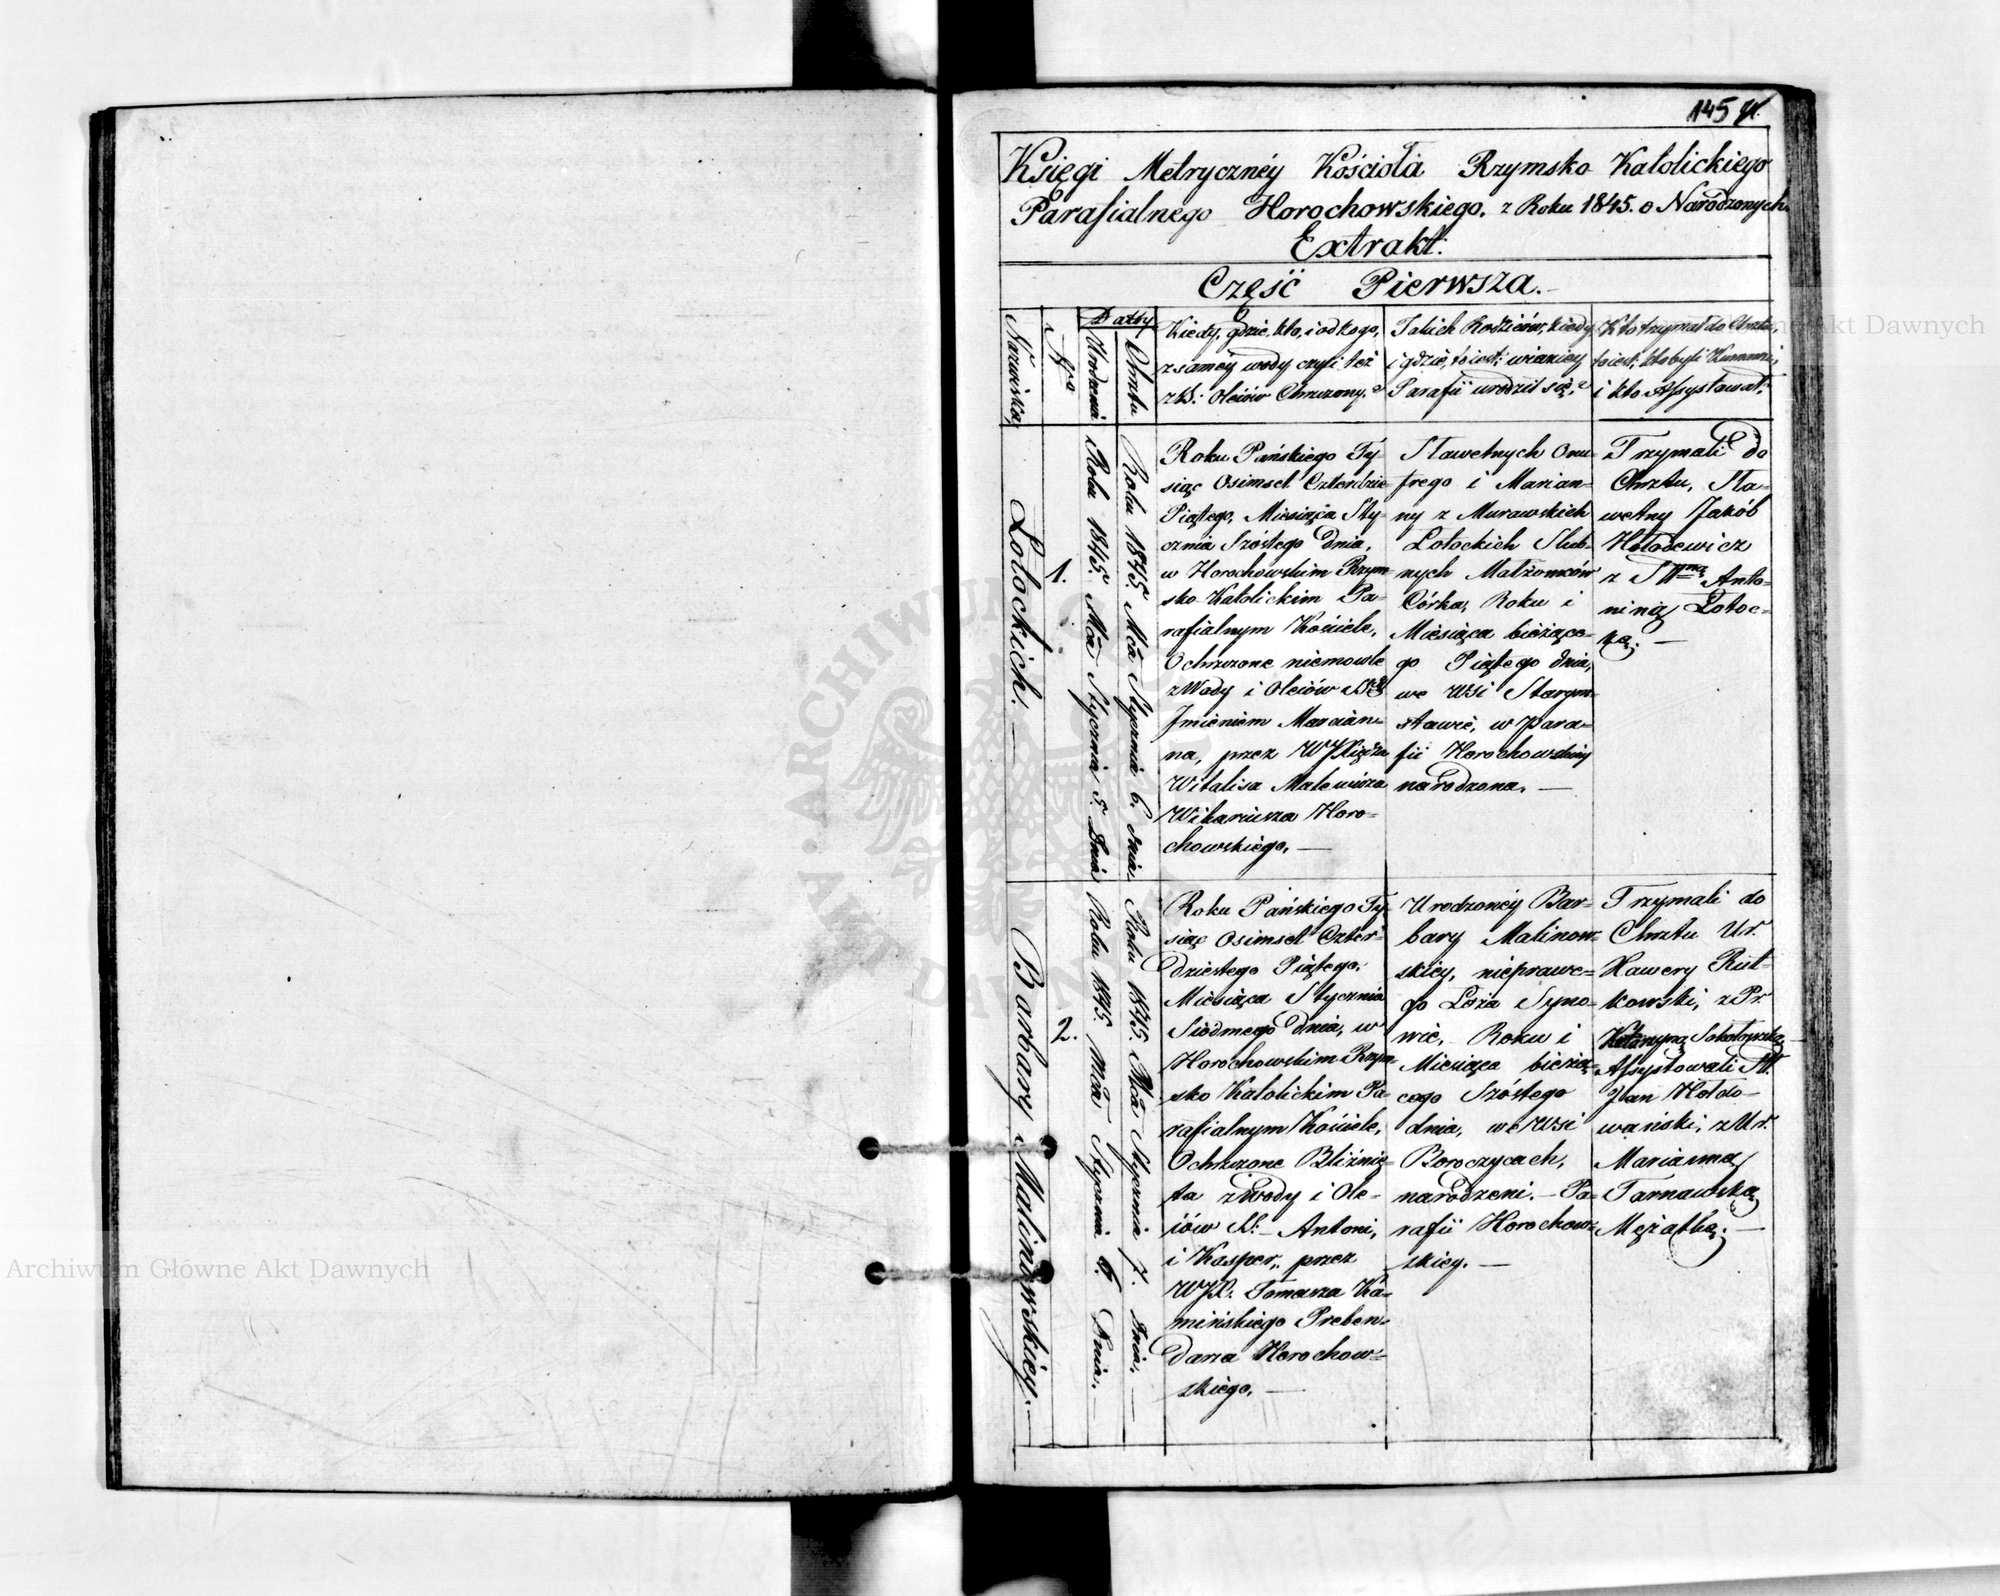 145
Księgi Metrycznéy Kościoła Rzymsko Katolickiego
Parafialnego Horochowskiego, z Roku 1845. o Narodzonych
Extrakt.
Część Pierwsza.
Nazwiska
Nro
Datty
Urodzenia
Chrztu
Kiedy, gdzie, kto, i od kogo,
z samey wody czyli też
z SS: Oleiów Chrzczony?
Jakich Rodziców, kiedy
i gdzie, to iest: w iakiey
Parafii urodził się?
Kto trzymał do Chrztu,
to iest, kto byli Kumowie,
i kto Assystował:
Łotockich. —
1.
Roku 1845. Mca Stycznia 5. Dnia
Roku 1845. Mca Stycznia 6. dnia.
Roku Pańskiego Ty-
siąc Osimset Czterdzie
Piątego, Miesiąca Sty-
cznia Szóstego dnia,
w Horochowskim Rzym-
sko Katolickim Pa-
rafialnym Kościele,
Ochrzczone niemowle
z Wody i Oleiów
Jmieniem Marcian-
na, przez WJXiędza
Witalisa Malewicza
Wikariusza Horo-
chowskiego. —
Sławetnych Onu-
frego i Marian-
ny z Murawskich
Łotockich Slub-
nych Małżonków
Córka, Roku i
Miesiąca bieżące-
go Piątego dnia,
we Wsi Starym-
stawie, w para-
fii Horochowskiey
narodzona. —
Trzymali do
Chrztu, Sła-
wetny Jakób
Hołodewicz
z Anto-
niną Łotoc-
ką. —
Barbary Malinowskiey. —
2.
Roku 1845. Mca Stycznia 6. Dnia. —
Roku 1845. Mca Stycznia 7. Dnia. —
Roku Pańskiego Ty-
siąc Osimset Czter-
dziestego Piątego,
Miesiąca Stycznia
Siódmego dnia, w
Horochowskim Rzym-
sko Katolickim Pa-
rafialnym Kościele,
Ochrzczone Bliźnię-
ta z wody i Ole-
iów SS: Antoni,
i Kasper, przez
WJX. Tomasza Ka-
mińskiego Preben-
darza Horochow-
skiego. —
Urodzonéy Bar-
bary Malinow-
skiey, nieprawe-
go Łoża Syno-
wie, Roku i
Miesiąca bieżą-
cego Szóstego
dnia, we Wsi
Boroczycach,
narodzeni. — Pa-
rafii Horochow-
skiey. —
Trzymali do
Chrztu Ur.
Xawery Rut-
kowski, z Pr.
Katarzyną Sokołowską
Assystowali
Jan Hołdo-
wański, z Ur.
Marianną
Tarnawską
Mężatką. —
ARCHIWUM GŁÓWNE AKT DAWNYCH
Archiwum Główne Akt Dawnych
Archiwum Główne Akt Dawnych